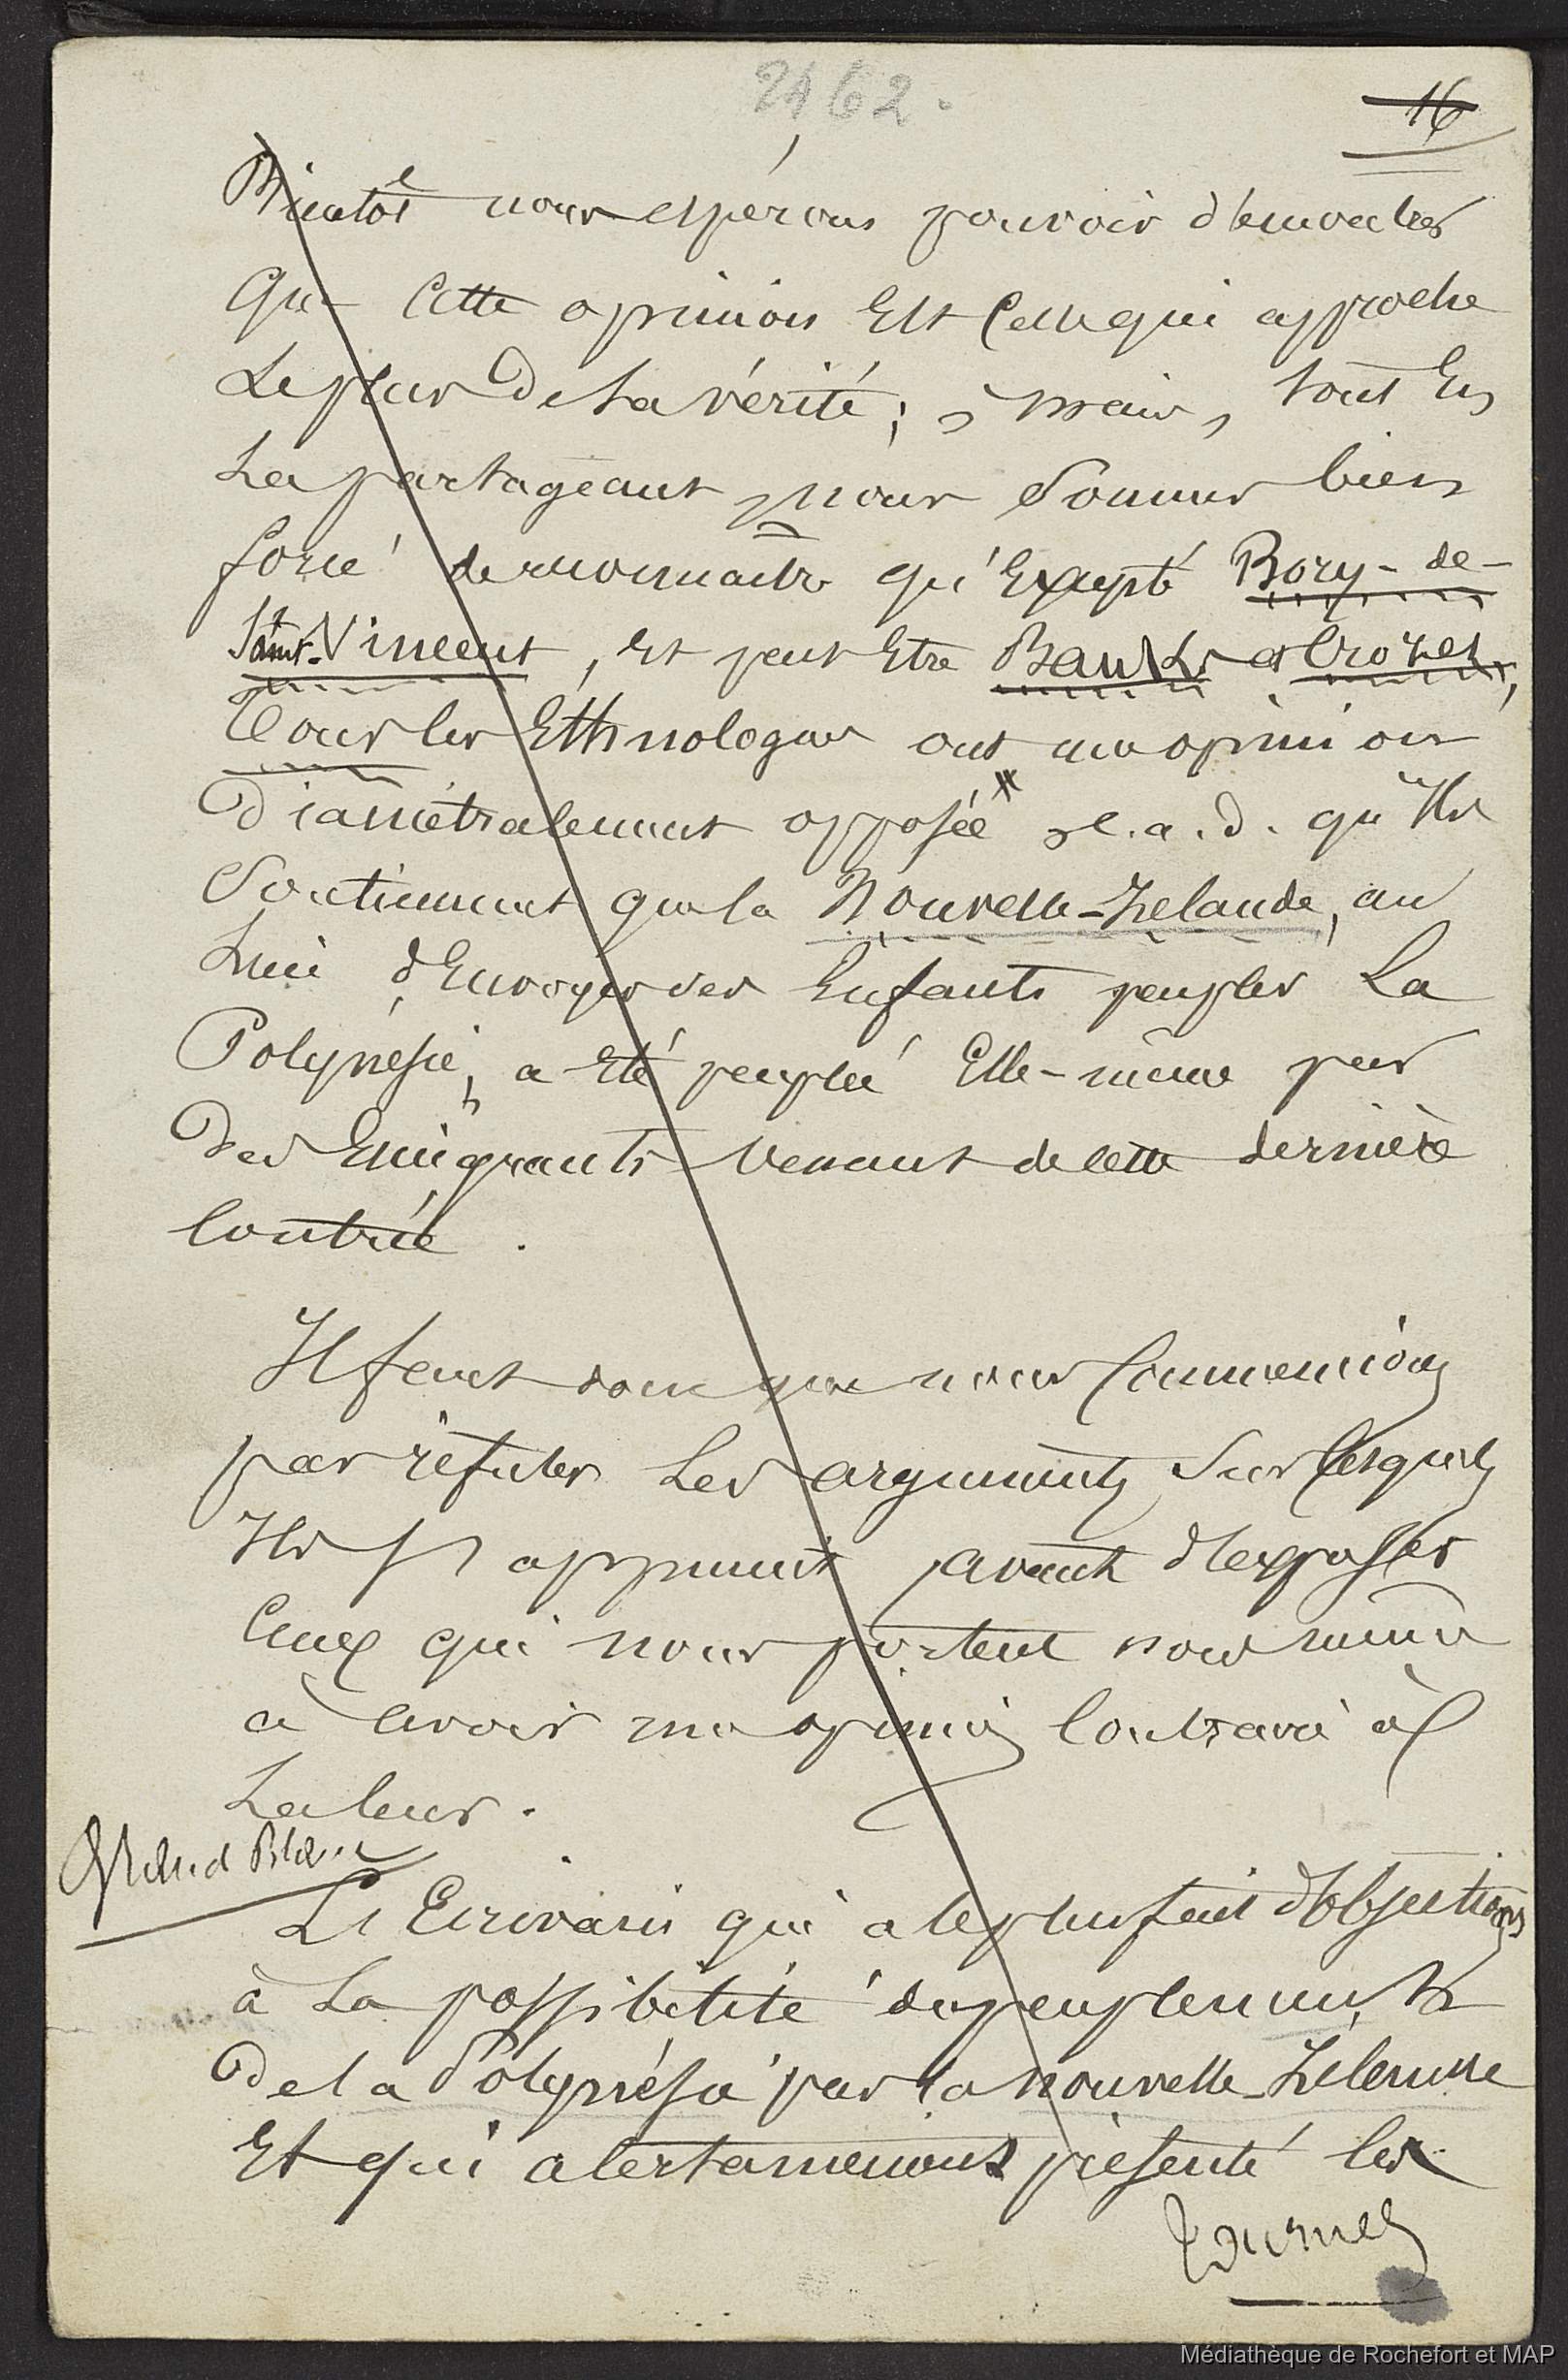 2462.
16
Bientôt nous espérons pouvoir démontrer
Que Cette opinion Est Celle qui approche
Le plus De La vérité; mais, tout En
La partageant, nous Sommes bien
forcé de reconnaitre qu'Excepté Bory-de-
Saint-Vincent, Et peut Etre Banks et Crozet,
Tous les Ethnologues ont une opinion
Diamétralement opposée, c.a.d. qu'Ils
Soutiennent que la Nouvelle-Zelande, au
Lieu d'Envoyer des Enfants peupler La
Polynésie, a Eté peuplée Elle-même par
Des Emigrants Venant de cette dernière
Contrée.
Il faut donc que nous Commencions
par réfuter Les arguments Sur Lesquels
Ils S'appuient, avant d'exposer
Ceux qui nous portent nous même
à avoir une opinion Contraire à
La leur.
Grand Blanc
L'Ecrivain qui a le plus fait d'objections
à La possibilité du peuplement
De la Polynésie par la Nouvelle-Zélande
Et qui a certainement présenté les
Tournez
Médiathèque de Rochefort et MAP